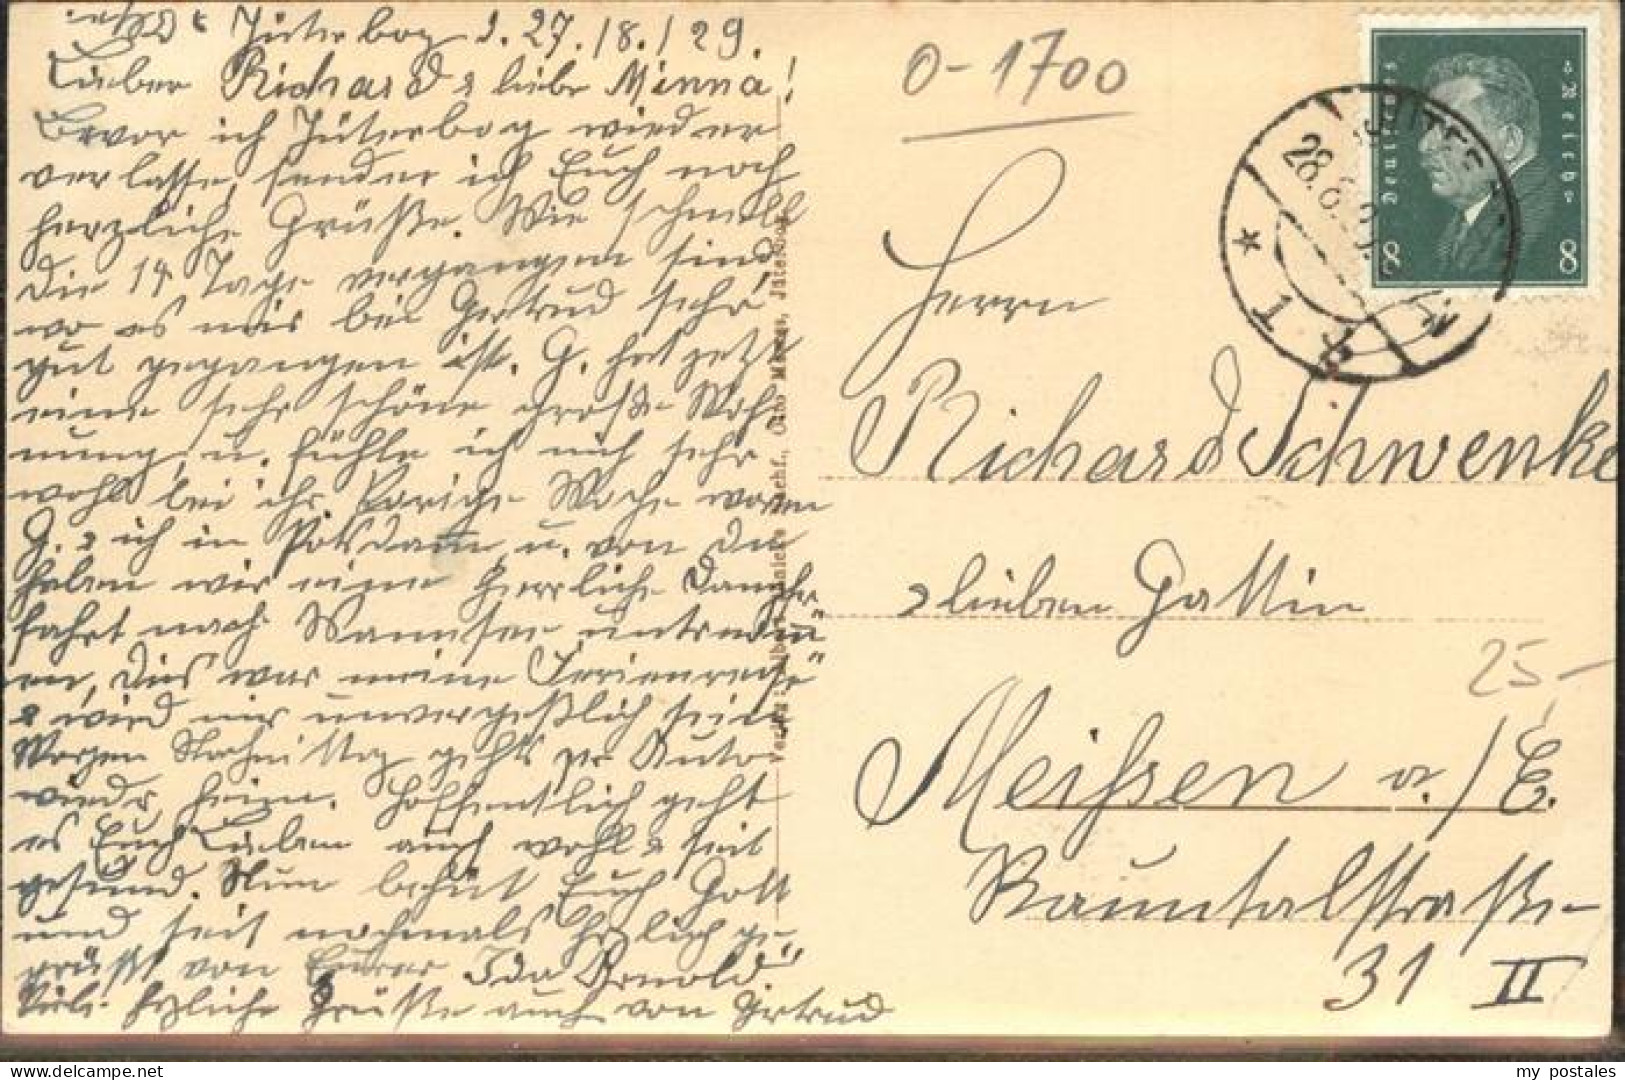 Jüterbog d. 27./8./29.
Lieber Richard & liebe Minna!
Bevor ich Jüterbog wieder
verlasse, sende ich Euch noch
herzliche Grüße. Wie schnell
die 14 Tage vergangen sind
wo es mir bei Gertrud sehr
gut gegangen ist. G. hat jetzt
eine sehr schöne große Woh
nung, u. fühle ich mich sehr
wohl bei ihr. Vorige Woche waren
G. & ich in Potsdam, u. von da
haben wir eine herrliche Dampfer
fahrt nach Wannsee unternom
en, dies war meine Ferienreise
& wird mir unvergeßlich sein
Morgen Nachmittag gehts per Auto
wieder heim. Hoffentlich geht
es Euch Lieben auch wohl & seit
gesund. Nun behüt Euch Gott
und seit nochmals herzlich ge-
grüßt von Eurer Ida Arnold
Viele herzliche Grüße auch von Gertrud
O-1700
Deutsches Reich
8 8
28.8.
Herrn
Richard Schwenke
& lieben Gattin
25-
Meißen a./E.
Rauntalstraße-
31 II
my postales